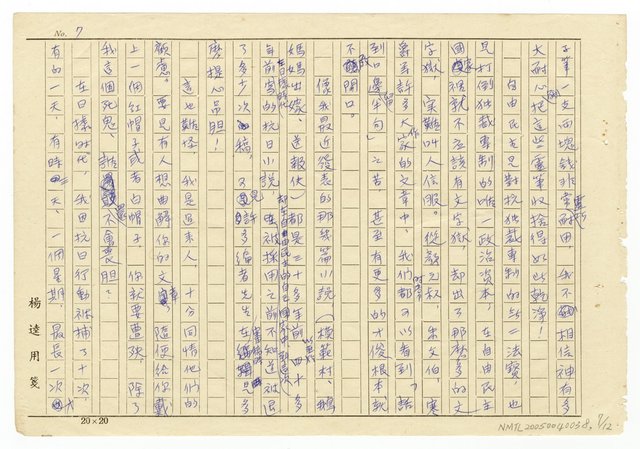 No. 7
子筆一支兩塊錢非常耐用,我不相信神有多
大耐心把這些靈筆收拾得如此乾淨!
自由民主是對抗獨裁專制的唯一法寶,也
是打倒獨裁專制的唯一政治資本,在自由民主
國家就不應該有文字獄,却出了那麼多的文
字獄,實難叫人信服。從
朱文伯,寒
爵等許多人家的文章中,我們都可以看到「話
到口邊半句」之苦,甚至有更多的才俊根本就
不敢開口。
像我最近發表的那幾篇小說(模範村、鵝
媽媽出嫁、送報伕)都是三十多年前、四十多
年前寫的抗日小說,
被採用之前不知道被退
了多少次稿,又見許多編者先生在
磨、擔心、吊胆!
這也難怪,我是過來人,十分同情他們的
顧慮。要是有人想曲解你的文章,隨便給你戴
上一個紅帽子或者白帽子,你就要遭殃,除了
我這個死鬼,誰還不會喪胆。
在日據時代,我因抗日行動被捕了十次,
有的一天,有時一天、一個星期,最長一次
楊逵用箋
20×20
NMTL20050040038, 7/12